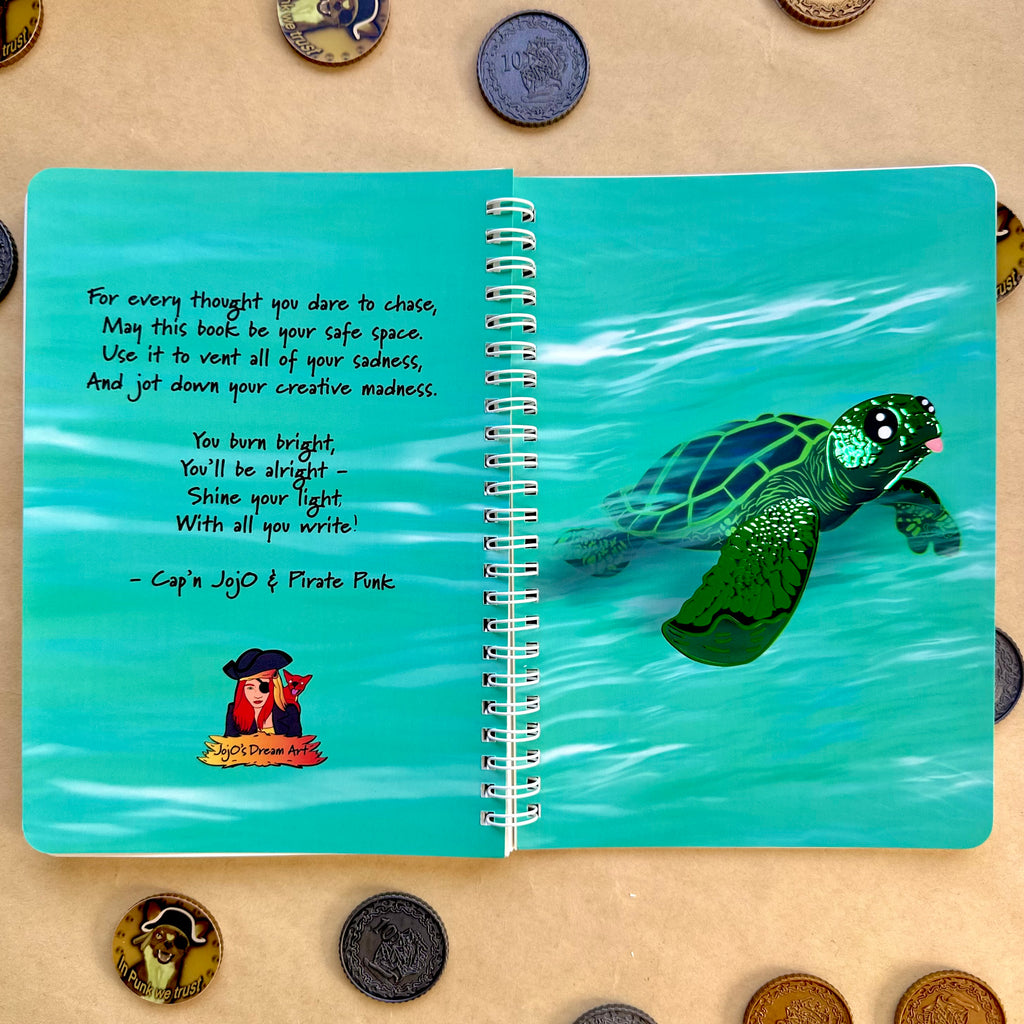 trust
n we trust
10
For every thought you dare to chase,
May this book be your safe space.
Use it to vent all of your sadness,
And jot down your creative madness.
You burn bright,
You'll be alright –
Shine your light,
With all you write!
– Cap'n JojO & Pirate Punk
JojO's Dream Art
rust
In Punk we trust
10